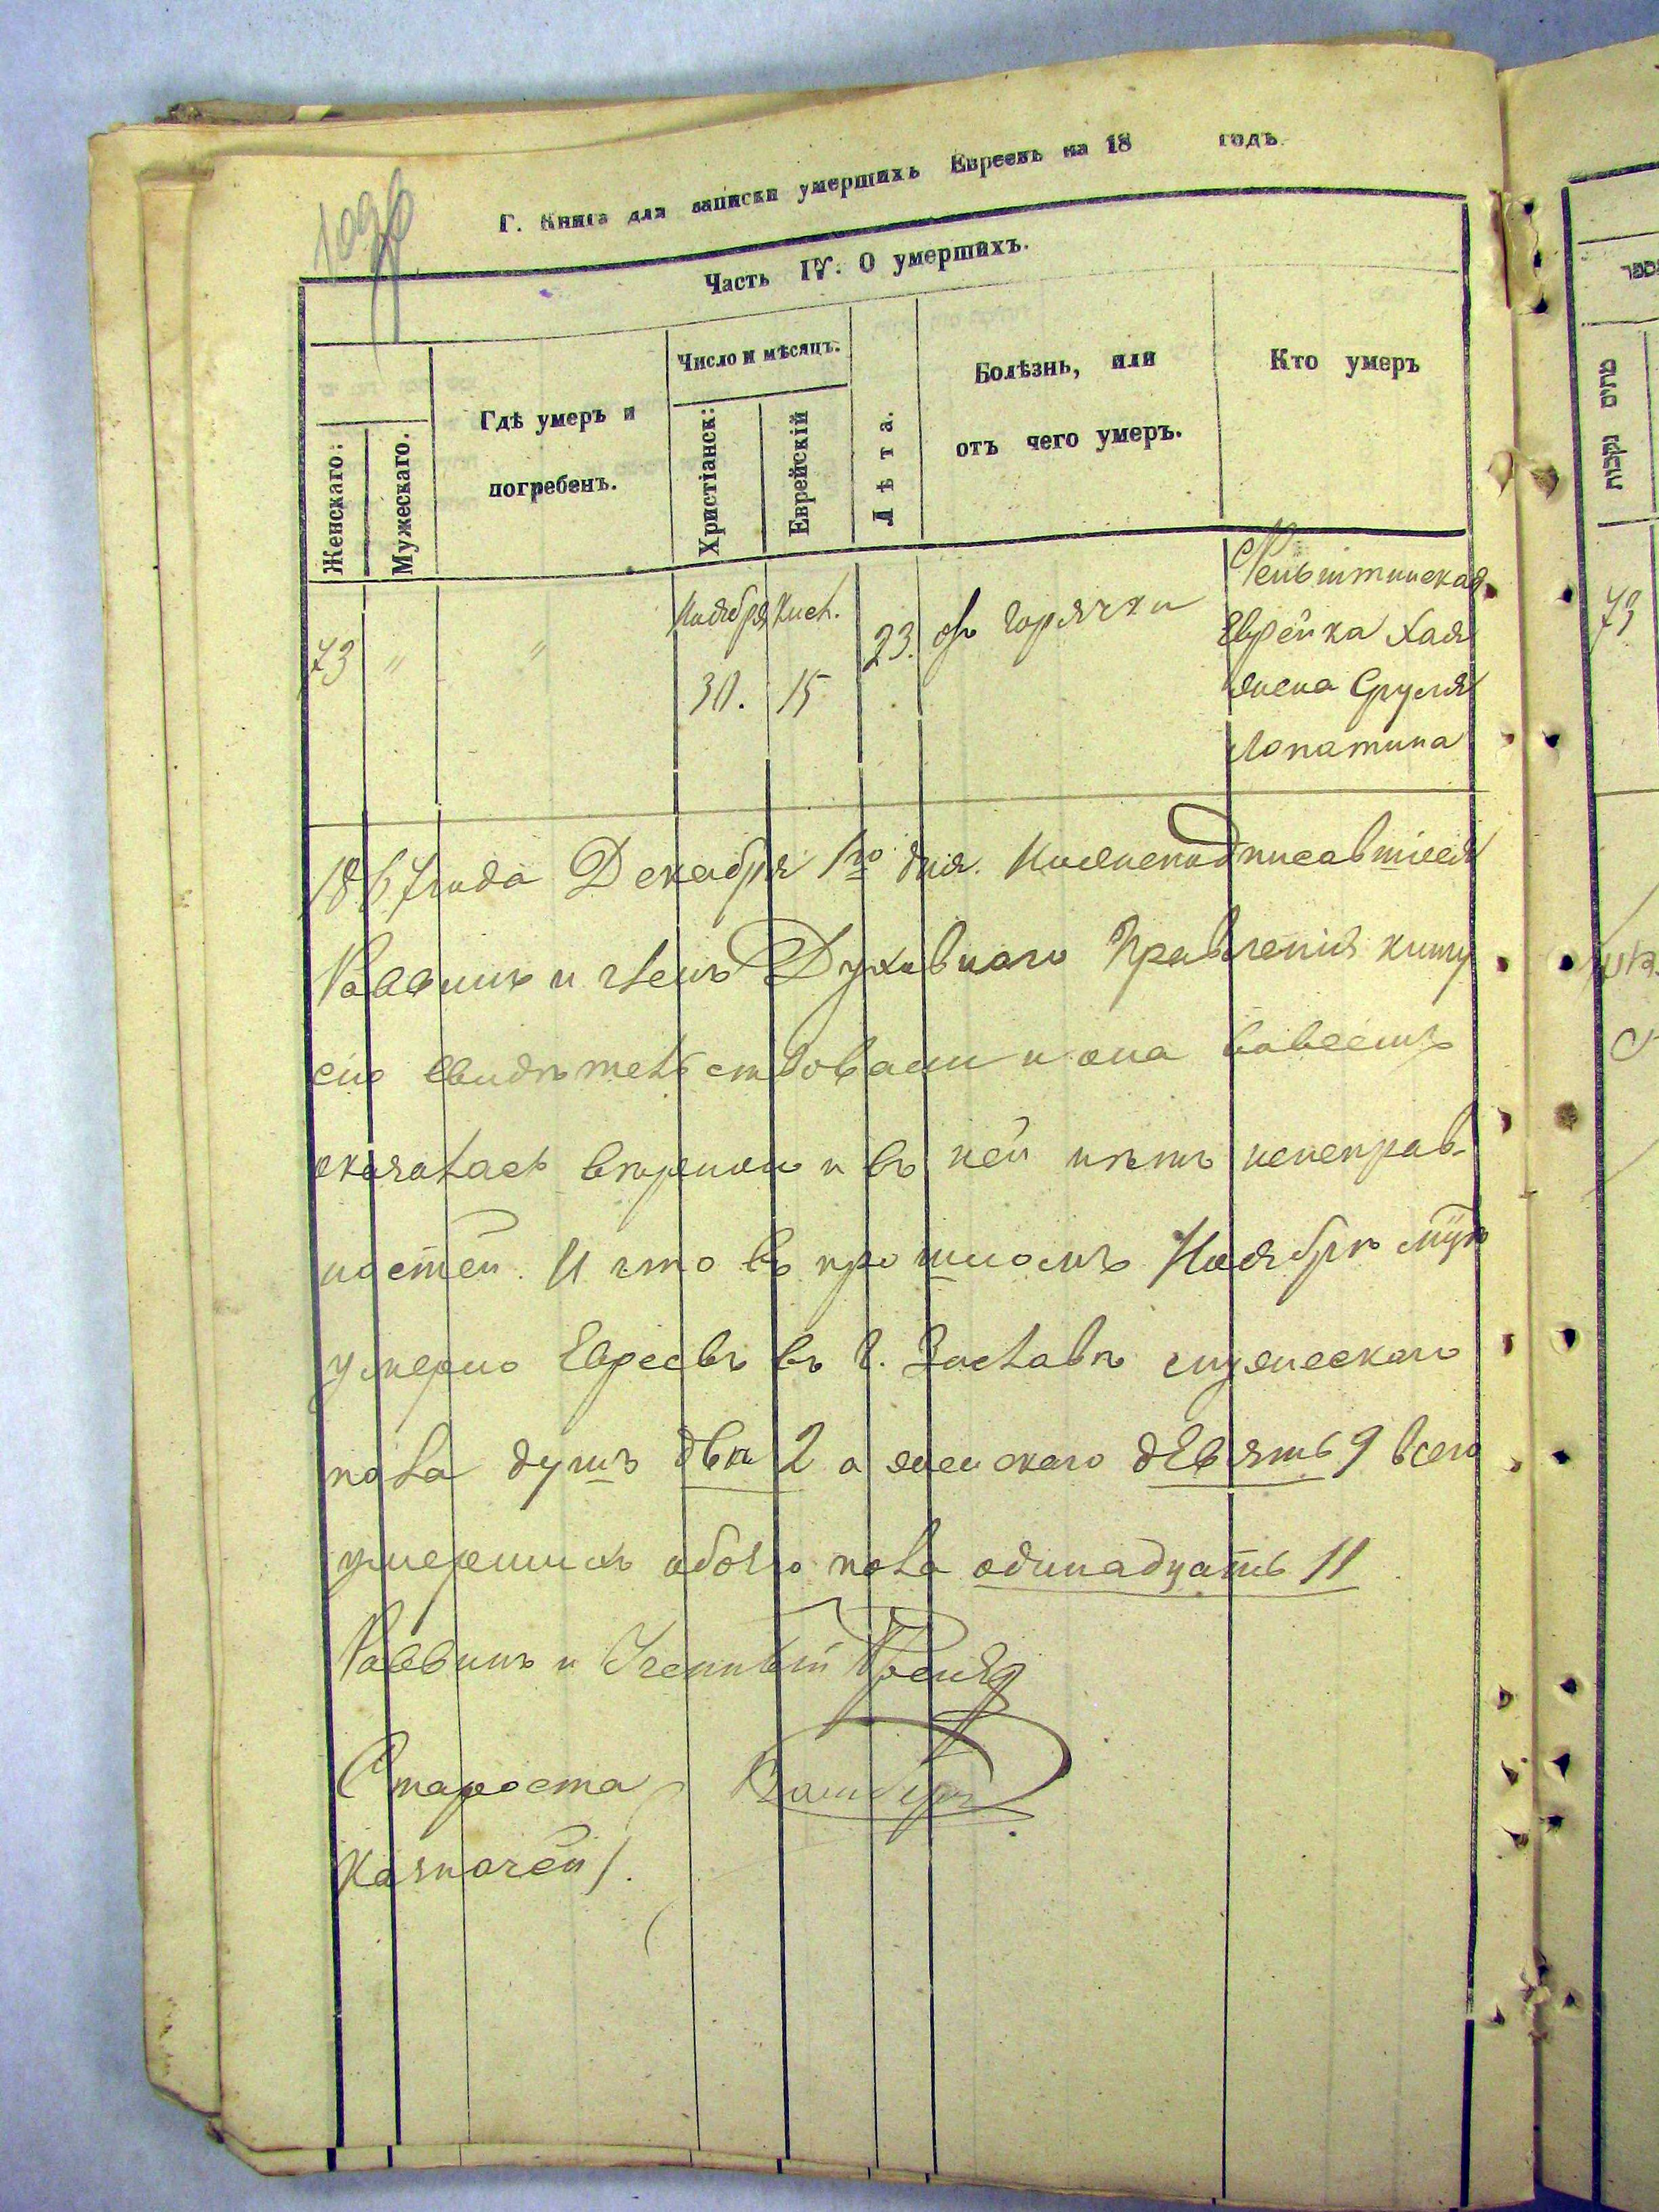 109
Г. Книга для записки умершихъ Евреевъ на 18 годъ
Часть IV. О умершихъ.
Женскаго.
Мужескаго.
Гдѣ умеръ и
погребенъ.
Число и мѣсяцъ.
Христіанск:
Еврейскій
Лѣта.
Болѣзнь, или
отъ чего умеръ.
Кто умеръ
73 " " Ноября 30. Кисл. 15 23. отъ горячки
Еврейка Хая
жена Сруля
Лопатина
1867 года Декабря 1го дня. Нижеподписавшіеся
Раввинъ и члены Духовного Правленія книгу
сію свидѣтельствовали и она вовсемъ
оказалась вѣрною и въ ней нѣтъ неисправ-
ностей. И что въ прошломъ Ноябрѣ мцѣ
умерло Евреевъ въ г. Заславѣ мужескаго
пола душъ двѣ 2 а женскаго девять 9 всего
умершихъ обоего пола одинадцать 11
Раввинъ и Ученный
Староста
Казначей
סטרים נקבות
73